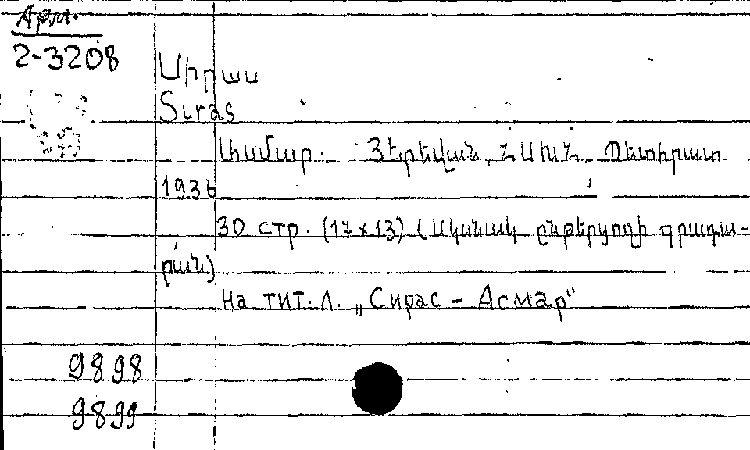 Арм.
2-3208
Սիրաս
Siras
Ասմար. Յերեվան, Հ.Ս.Խ.Հ. Պետհրատ
1936
30 стр. (17 x 13) (Սկսնակ ընթերցողի գրադա-
րան)
На тит. л. „Сирас – Асмар"
9898
9899